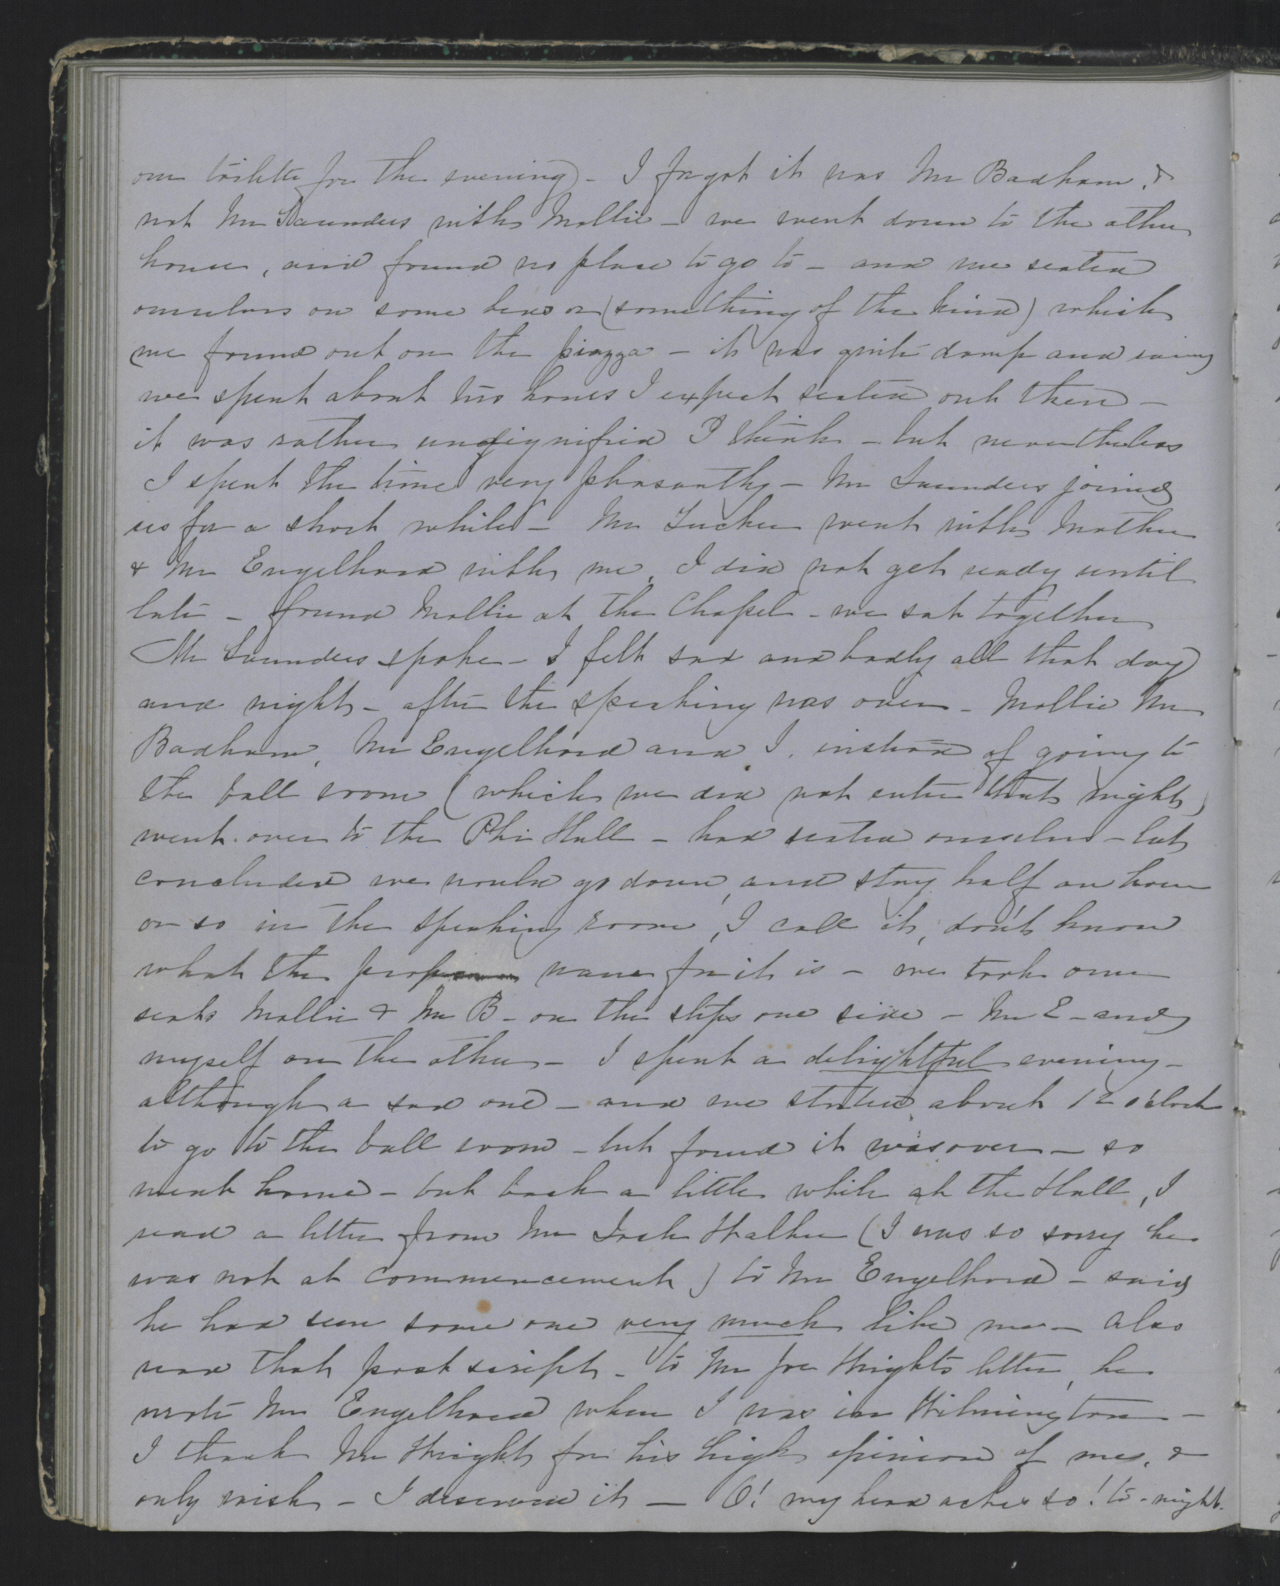 our toilette for the evening) - I forgot it was Mr Badham, &
not Mr Saunders with Mollie - we went down to the other
house, and found no place to go to - and we seated
ourselves on some boxes or (something of the kind) which
we found out on the piazza - it was quite damp and rainy
we spent about two hours I expect seated out there -
it was rather undignified I think - but nevertheless
I spent the time very pleasantly - Mr Saunders joined
us for a short while - Mr Tucker went with Mother
& Mr Engelhard with me, I did not get ready until
late - found Mollie at the Chapel - we sat together
Mr Saunders spoke - I felt sad and badly all that day
and night - after the speaking was over - Mollie Mr
Badham, Mr Engelhard and I, instead of going to
the ball room (which we did not enter that night)
went over to the Phi Hall - had seated ourselves - but
concluded we would go down, and stay half an hour
or so in the speaking room, I call it, don't know
what the proper name for it is - we took our
seats Mollie & Mr B - on the steps one side - Mr E - and
myself on the other - I spent a delightful evening -
although a sad one - and we started about 12 o'clock
to go to the ball room - but found it was over - so
went home - but back a little while at the Hall, I
read a letter from Mr Josh Walker (I was so sorry he
was not at commencement) to Mr Engelhard - said
he had seen some one very much like me - also
read that post script - to Mr Joe Wrights letter, he
wrote Mr Engelhard when I was in Wilmington -
I thank Mr Wright for his high opinion of me, &
only wish - I deserved it - O! my head aches so! to-night.